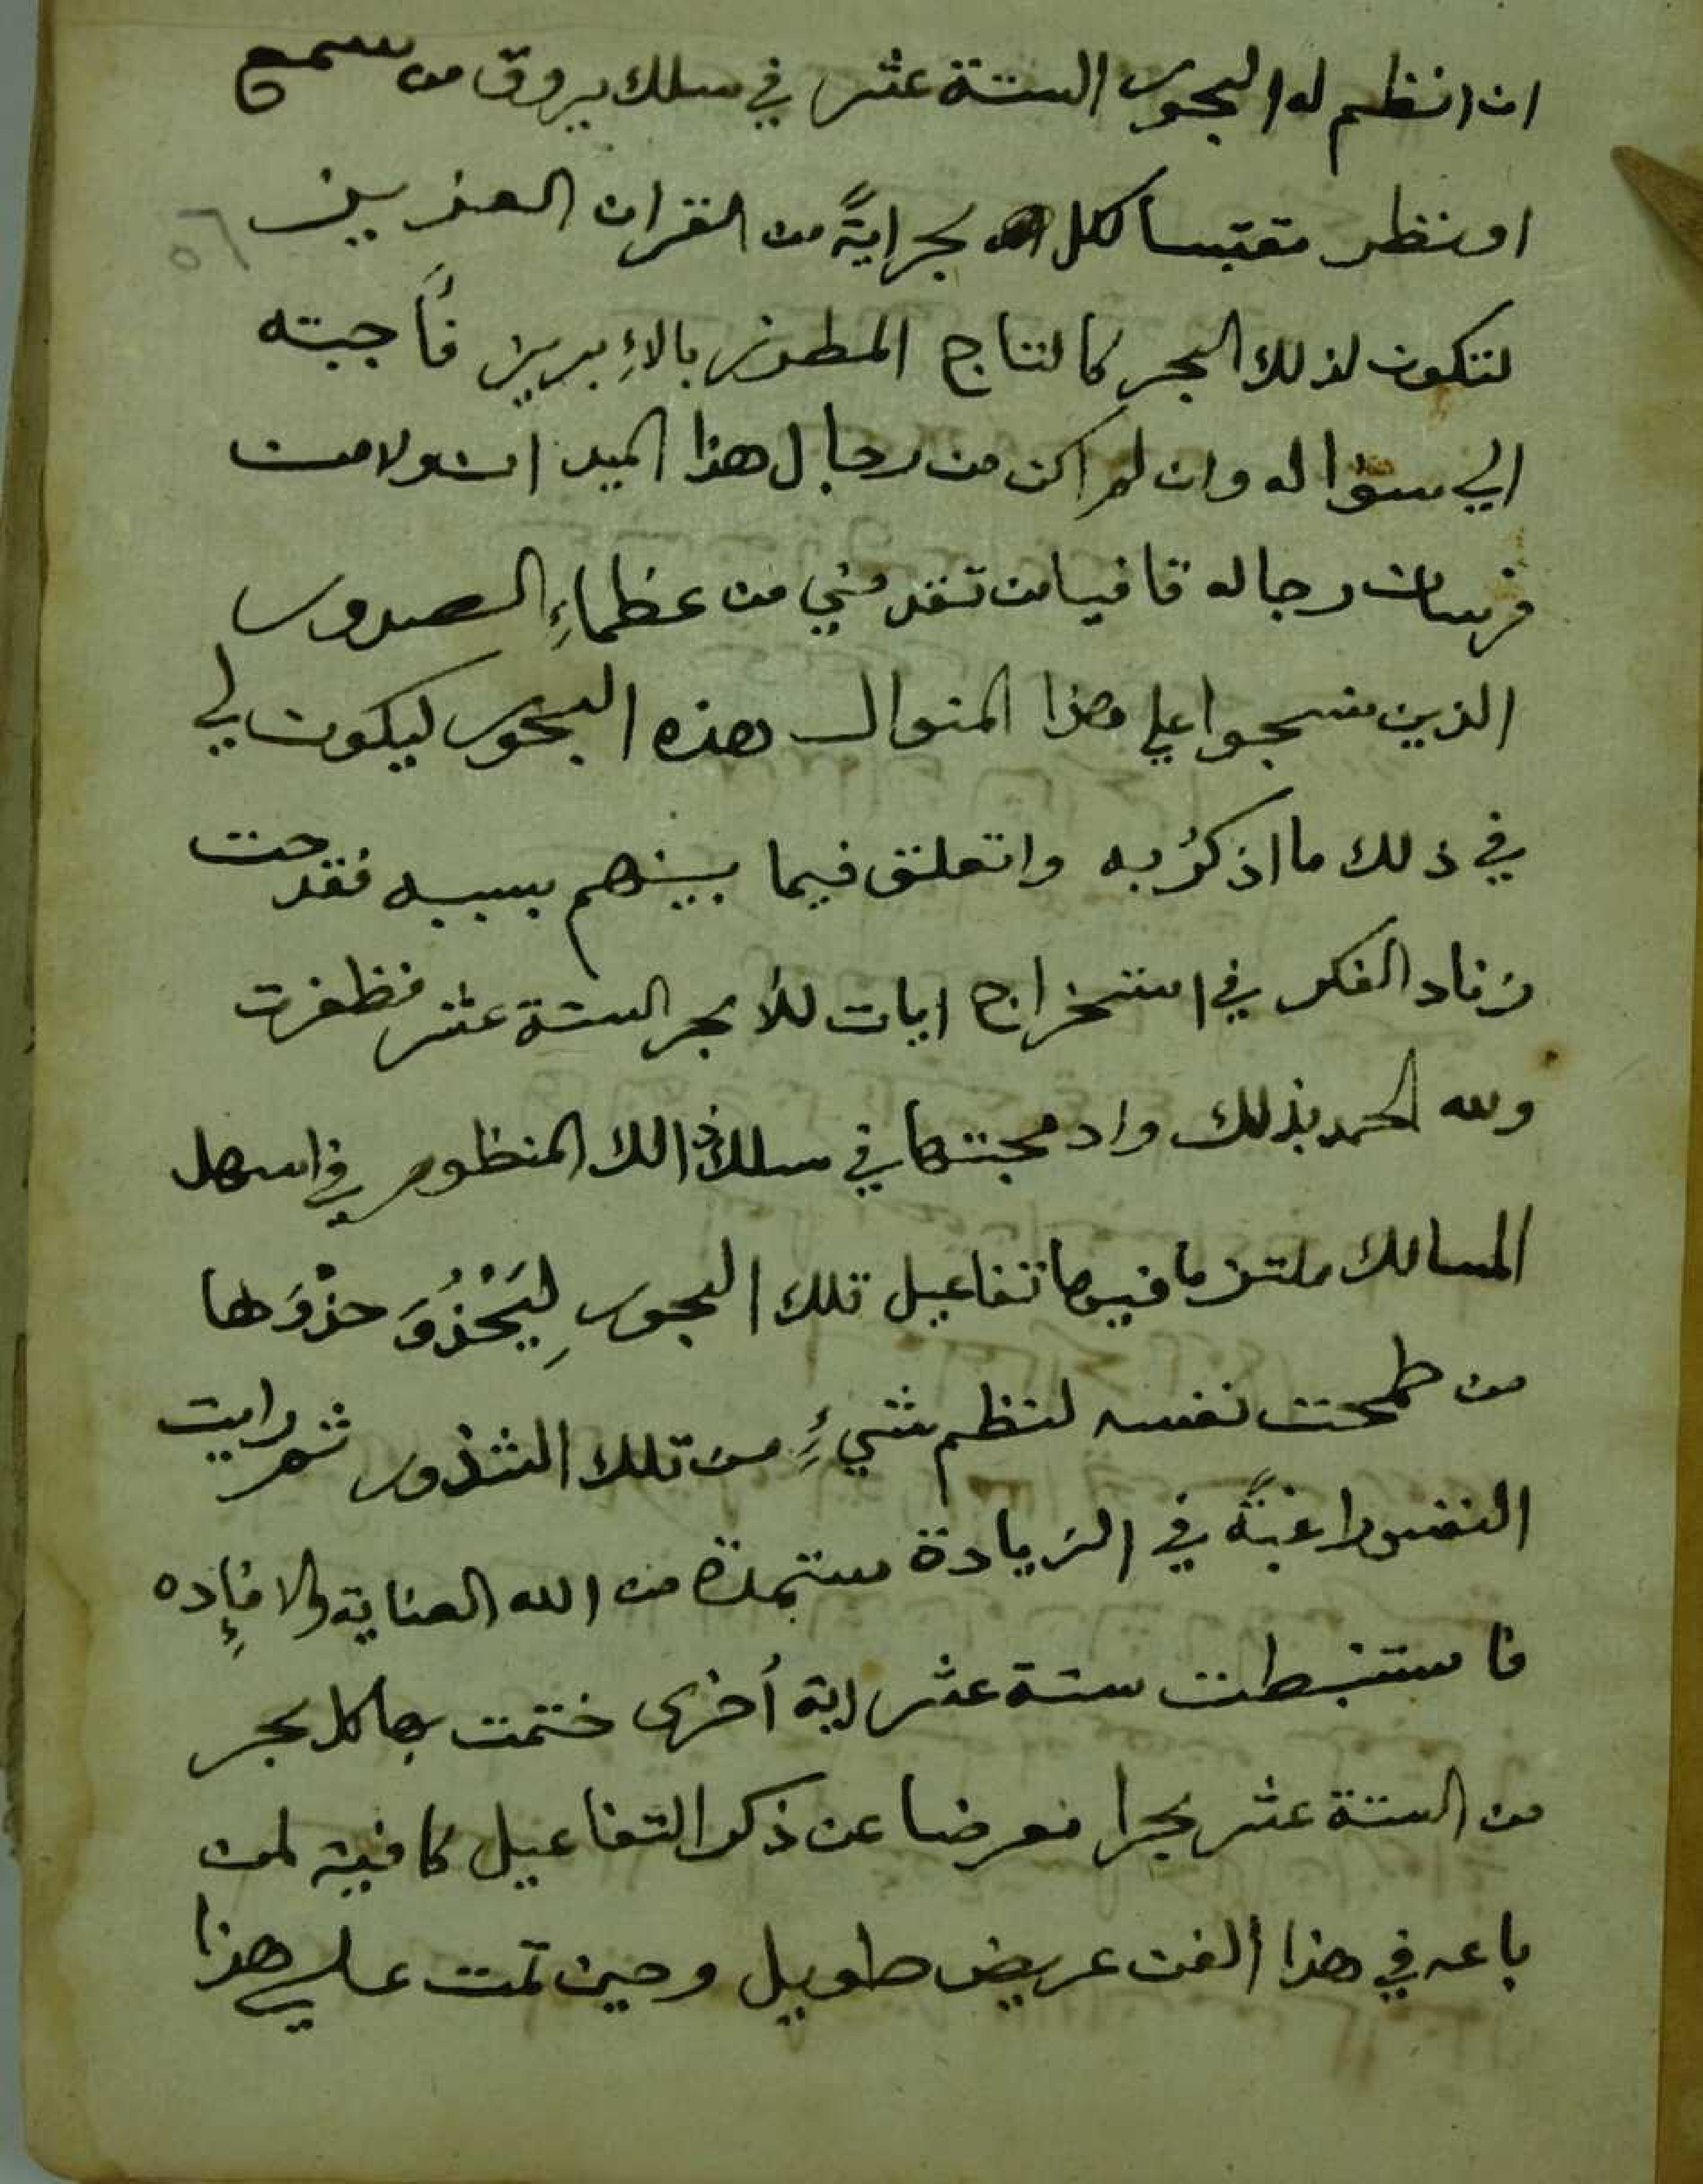 ان انظم له البحور الستة عشر في سلك يروق من سمع
او نظر مقتبسا لكل بحر ايةً من القران العزيز
لتكون لذلك البحر كالتاج المطرز بالاٍبريز فأجبته
الي سؤاله وان لم اكن من رجال هذا الميدان ولا من
فرسان رجاله قافيا من تقدمني من عظماءِ الصدور
الذين نسجوا علي هذا المنوال هذه البحور ليكون لي
في ذلك ما اذكرُ به واتعلق فيما بينهم بسببه فقدحت
زناد الفكر في استخراج ايات للأبحر الستة عشر فظفرت
ولله الحمد بذلك وادمجتها في سلك ذالك المنظوم في اسهل
المسالك ملتزما فيها تفاعيل تلك البحور لِيَحْذُوَ حذْوَها
من طمحت نفسه لنظم شيءٍ من تلك الشذور ثم رايت
النفس راغبةً في الزيادة مستمدة من الله العناية والافاٍده
فاستنبطت ستة عشر اية أخرى ختمت بها كل بحر
من الستة عشر بحرا فعرضا عن ذكر التفاعيل كافية لمن
باعه في هذا الفن عريض طويل وحين تمت علي هذا